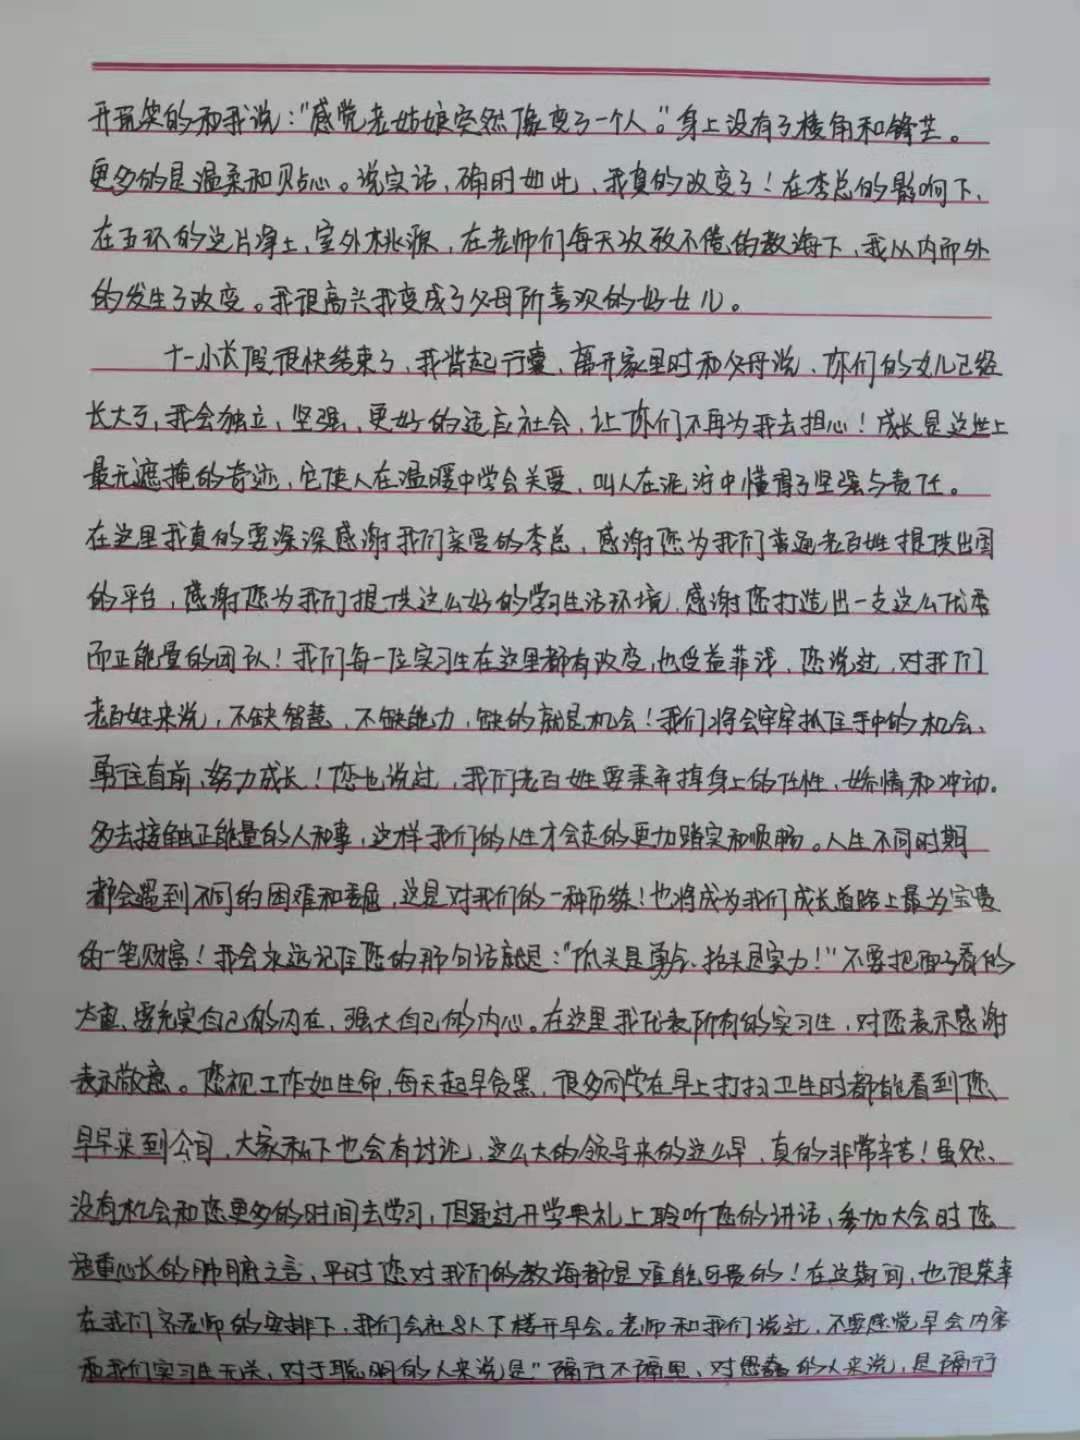 开玩笑的和我说：“感觉老姑娘突然像变了一个人。”身上没有了棱角和锋芒。
更多的是温柔和贴心。说实话，确时如此，我真的改变了！在李总的影响下、
在五环的这片净土，室外桃源，在老师们每天孜孜不倦的教诲下，我从内而外
的发生了改变。我很高兴我变成了父母所喜欢的好女儿。
十一小长假很快结束了，我背起行囊，离开家里时和父母说，你们的女儿已经
长大了，我会独立，坚强，更好的适应社会，让你们不再为我去担心！成长是这世上
最无遮掩的奇迹，它使人在温暖中学会关爱，叫人在泥泞中懂得了坚强与责任。
在这里我真的要深深感谢我们亲爱的李总，感谢您为我们普通老百姓提供出国
的平台，感谢您为我们提供这么好的学习生活环境，感谢您打造出一支这么优秀
而正能量的团队！我们每一位实习生在这里都有改变，也受益菲浅，您说过，对我们
老百姓来说，不缺智慧，不缺能力，缺的就是机会！我们将会牢牢抓住手中的机会、
勇往直前，努力成长！您也说过，我们老百姓要乘弃掉身上的任性，娇情和冲动。
多去接触正能量的人和事，这样我们的人生才会走的更加踏实和顺畅。人生不同时期
都会遇到不同的困难和委屈，这是对我们的一种历练！也将成为我们成长道路上最为宝贵
的一笔财富！我会永远记住您的那句话就是：“低头是勇气，抬头是实力！”不要把面子看的
太重、要充实自己的内在，强大自己的内心。在这里我代表所有的实习生，对您表示感谢
表示敬意。您视工作如生命，每天起早贪黑，很多同学在早上打扫卫生时都能看到您、
早早来到公司，大家私下也会有讨论，这么大的领导来的这么早，真的非常辛苦！虽然、
没有机会和您更多的时间去学习，但通过开学典礼上聆听您的讲话，参加大会时您
语重心长的肺腑之言，平时您对我们的教诲都是难能可贵的！在这期间，也很荣幸
在我们齐老师的安排下，我们会社8人下楼开早会。老师和我们说过，不要感觉早会内容
和我们实习生无关，对于聪明的人来说是“隔行不隔里，对愚蠢的人来说，是隔行